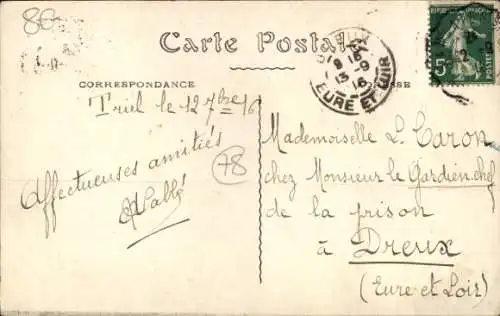 80
Carte Postale
CORRESPONDANCE
Triel le 12 7bre 16
Affectueuses amitiés
78
Mademoiselle L. Caron
chez Monsieur le Gardien chef
de la prison
à Dreux
(Eure et Loir)
8 15
13-9
16
EURE ET LOIR
5c
POSTES